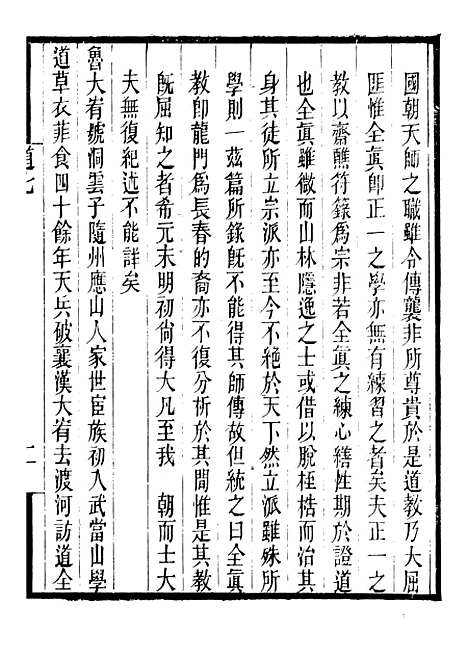 國朝天師之職雖令傳襲非所尊貴於是道教乃大屈
匪惟全眞卽正一之學亦無有練習之者矣夫正一之
教以齋醮符籙爲宗非若全眞之練心繕性期於證道
也全眞雖微而山林隱逸之士或借以脫桎梏而治其
身其徒所立宗派亦至今不絶於天下然立派雖殊所
學則一茲篇所錄旣不能得其師傳故但統之曰全眞
教卽龍門爲長春的裔亦不復分析於其間惟是其教
旣屈知之者希元末明初尙得大凡至我　朝而士大
夫無復紀述不能詳矣
魯大宥號洞雲子隨州應山人家世宦族初入武當山學
道草衣菲食四十餘年天兵破襄漢大宥去渡河訪道全
道七
二